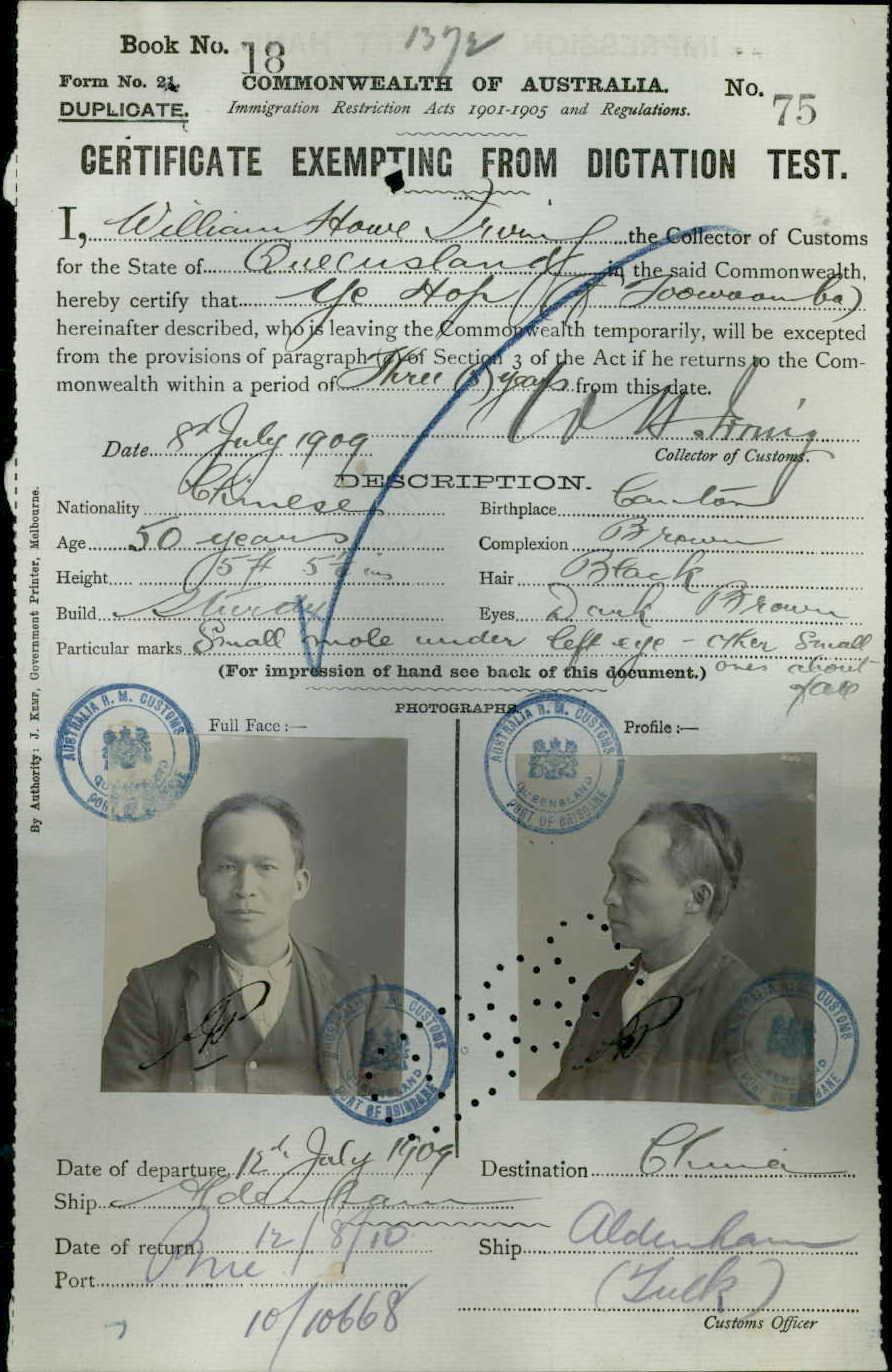 Book No. 18
1372
Form No. 21.
COMMONWEALTH OF AUSTRALIA.
No. 75
DUPLICATE.
Immigration Restriction Acts 1901-1905 and Regulations.
CERTIFICATE EXEMPTING FROM DICTATION TEST.
I, William Howe Irving the Collector of Customs
for the State of Queensland in the said Commonwealth,
hereby certify that Ye Hop (of Toowoomba)
hereinafter described, who is leaving the Commonwealth temporarily, will be excepted
from the provisions of paragraph (a) of Section 3 of the Act if he returns to the Com-
monwealth within a period of Three (3) years from this date.
W H Irving
Date 8th July 1909
Collector of Customs.
DESCRIPTION.
Nationality Chinese
Birthplace Canton
Age 50 years
Complexion Brown
Height 5 ft 5½ ins
Hair Black
Build Sturdy
Eyes Dark Brown
Particular marks Small mole under left eye - other small
ones about face
(For impression of hand see back of this document.)
PHOTOGRAPHS.
Full Face :—
Profile :—
AUSTRALIA H. M. CUSTOMS
QUEENSLAND
PORT OF BRISBANE
AUSTRALIA H. M. CUSTOMS
QUEENSLAND
PORT OF BRISBANE
AUSTRALIA H. M. CUSTOMS
QUEENSLAND
PORT OF BRISBANE
AUSTRALIA H. M. CUSTOMS
QUEENSLAND
PORT OF BRISBANE
Date of departure 12th July 1909
Destination China
Ship Aldenham
Date of return 12/8/10
Ship Aldenham
Port Bne
(Tulk)
10/10668
Customs Officer
By Authority: J. Kemp, Government Printer, Melbourne.